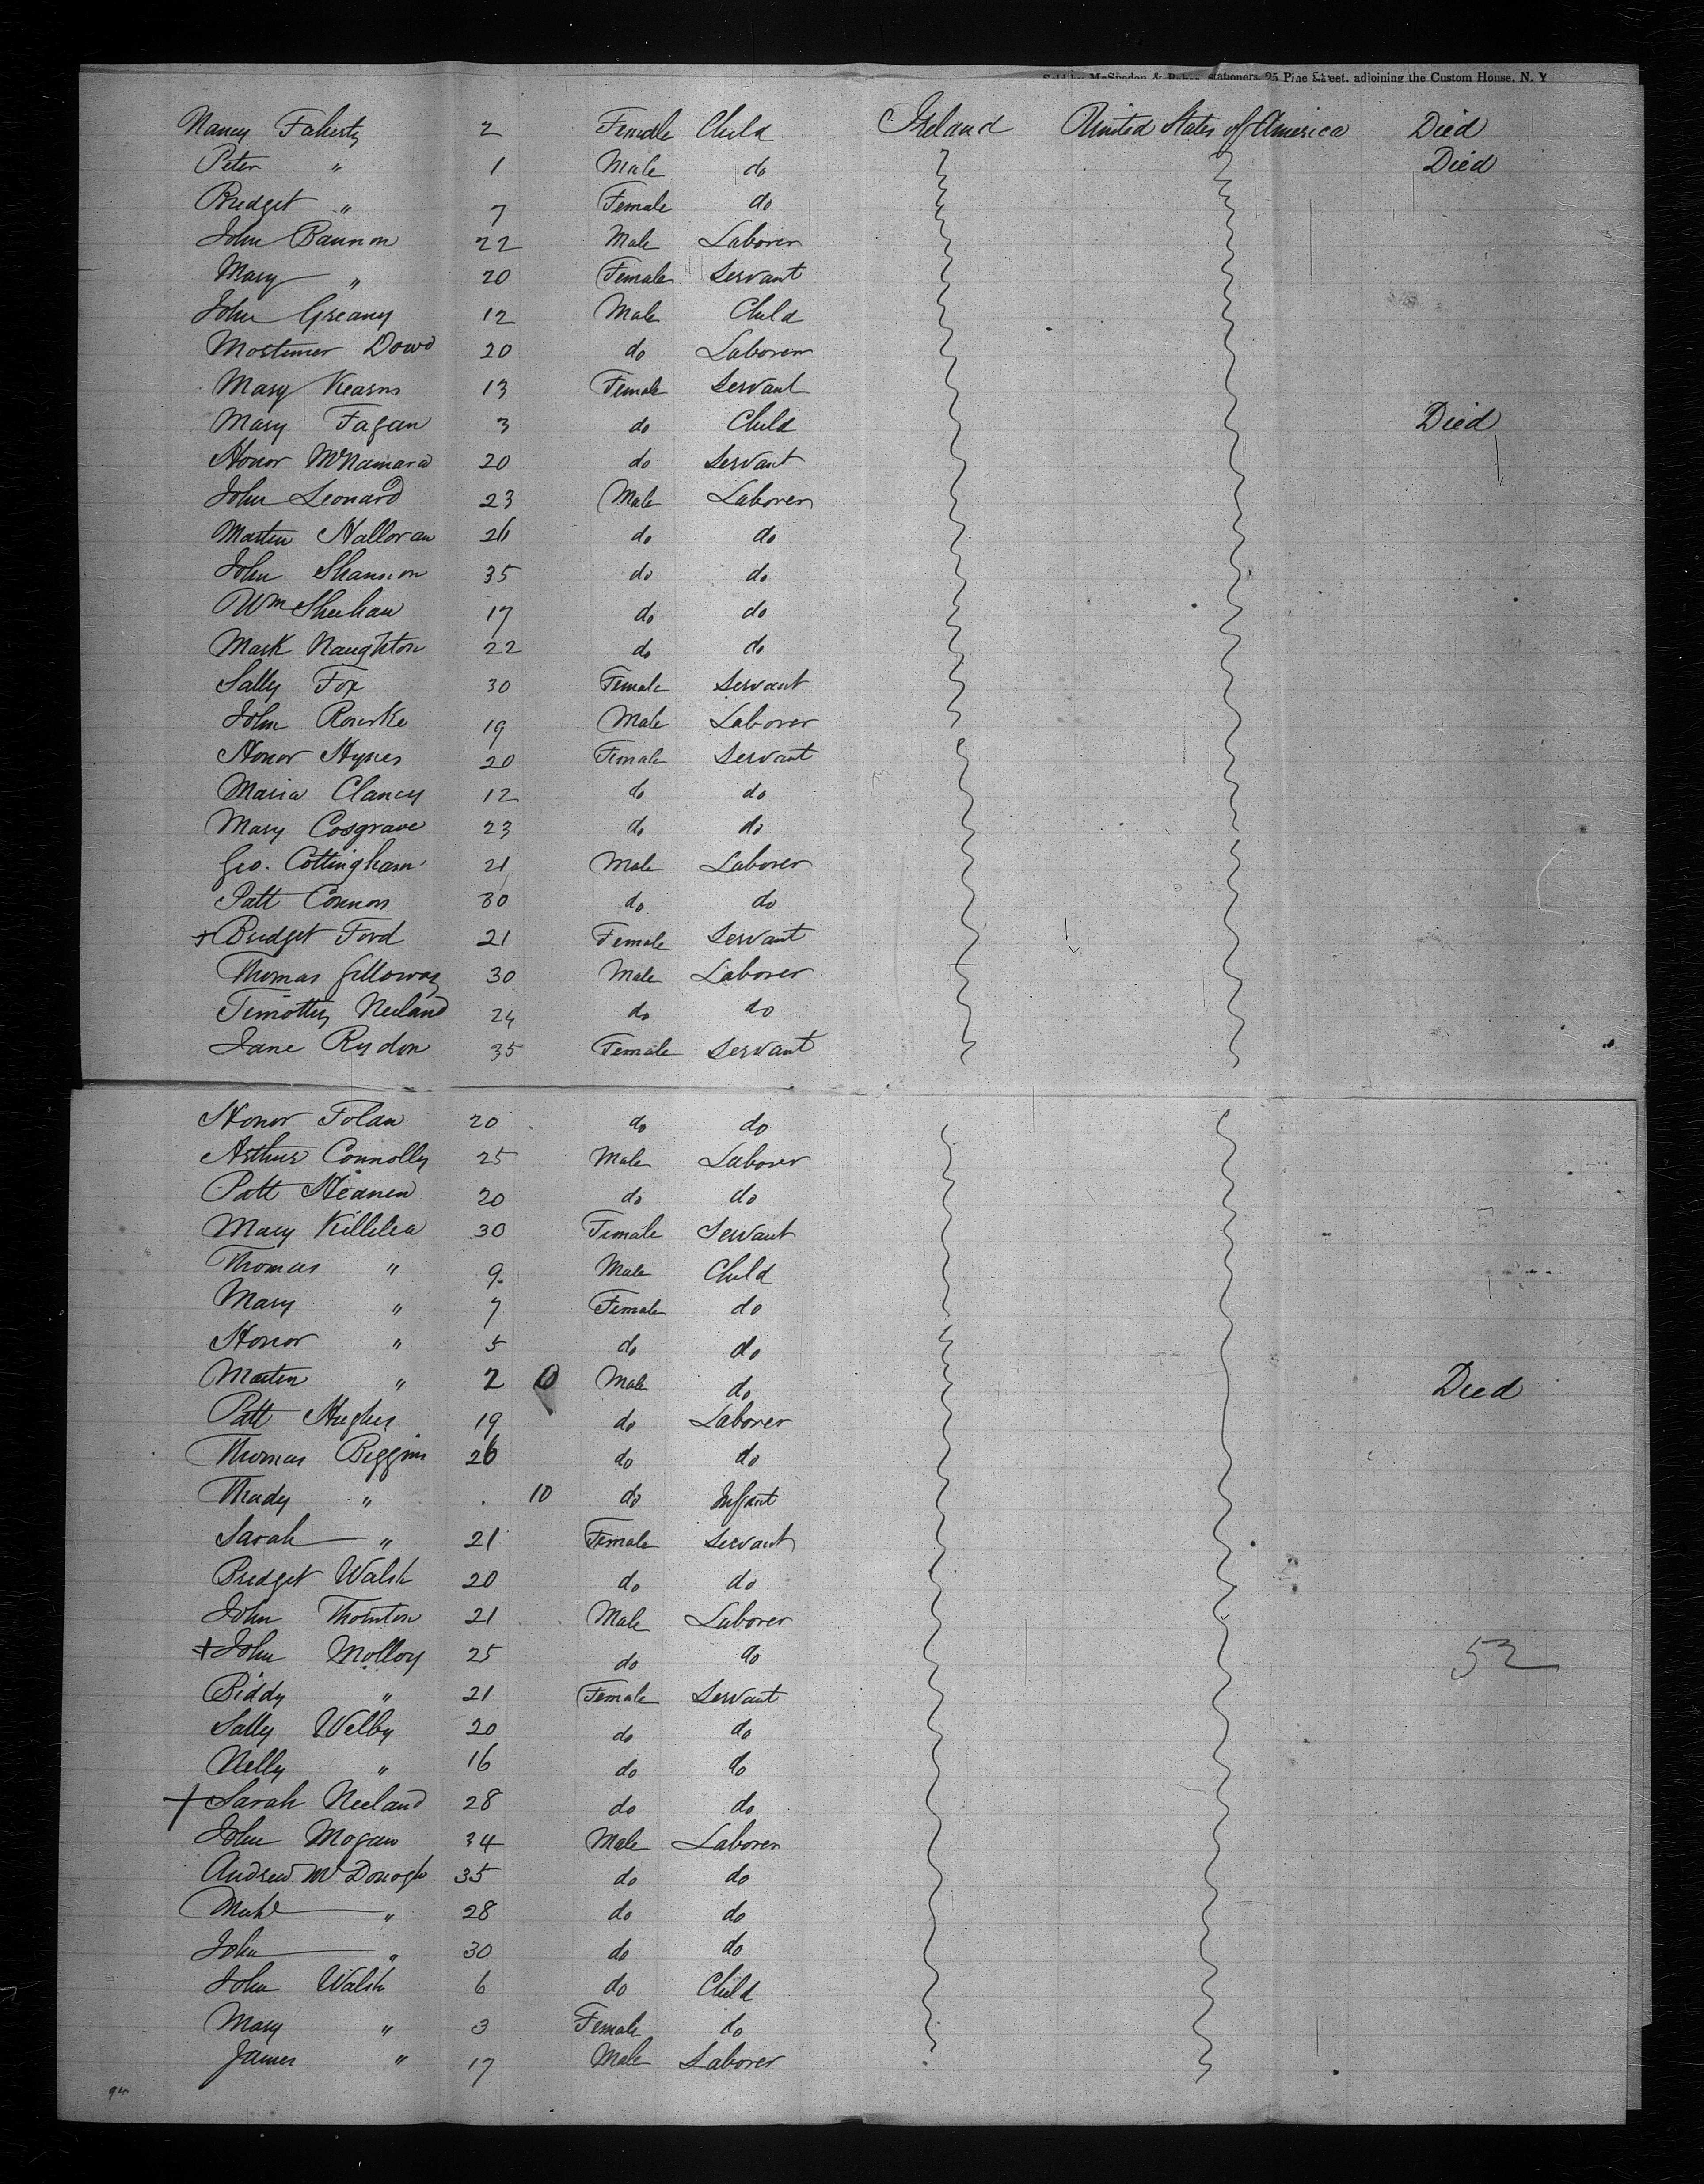 Sold by McSpedon & Baker, Stationers, 25 Pine Street, adjoining the Custom House, N. Y
Nancy Faherty 2 Female Child Ireland United States of America Died
Peter " 1 Male do Died
Bridget " 7 Female do
John Bannon 22 Male Laborer
Mary " 20 Female Servant
John Greany 12 Male Child
Mortimer Dowd 20 do Laborer
Mary Kearns 13 Female Servant
Mary Fagan 3 do Child Died
Honor McNamara 20 do Servant
John Leonard 23 Male Laborer
Martin Halloran 26 do do
John Shannon 35 do do
Wm Sheehan 17 do do
Mark Naughton 22 do do
Sally Fox 30 Female Servant
John Rourke 19 Male Laborer
Honor Hynes 20 Female Servant
Maria Clancy 12 do do
Mary Cosgrave 23 do do
Geo. Cottingham 21 Male Laborer
Patt Connors 30 do do
+ Bridget Ford 21 Female Servant
Thomas Gilloway 30 Male Laborer
Timothy Neeland 24 do do
Jane Rydon 35 Female Servant
Honor Folan 20 do do
Arthur Connolly 25 Male Laborer
Patt Heanen 20 do do
Mary Killilea 30 Female Servant
Thomas " 9 Male Child
Mary " 7 Female do
Honor " 5 do do
Martin " 2 0 Male do Died
Patt Hughes 19 do Laborer
Thomas Biggins 26 do do
Thady " . 10 do Infant
Sarah " 21 Female Servant
Bridget Walsh 20 do do
John Thornton 21 Male Laborer
+ John Molloy 25 do do 52
Biddy " 21 Female Servant
Sally Welby 20 do do
Nelly " 16 do do
+ Sarah Neeland 28 do do
John Mogan 34 Male Laborer
Andrew McDonogh 35 do do
Michl " 28 do do
John " 30 do do
John Walsh 6 do Child
Mary " 3 Female do
James " 17 Male Laborer